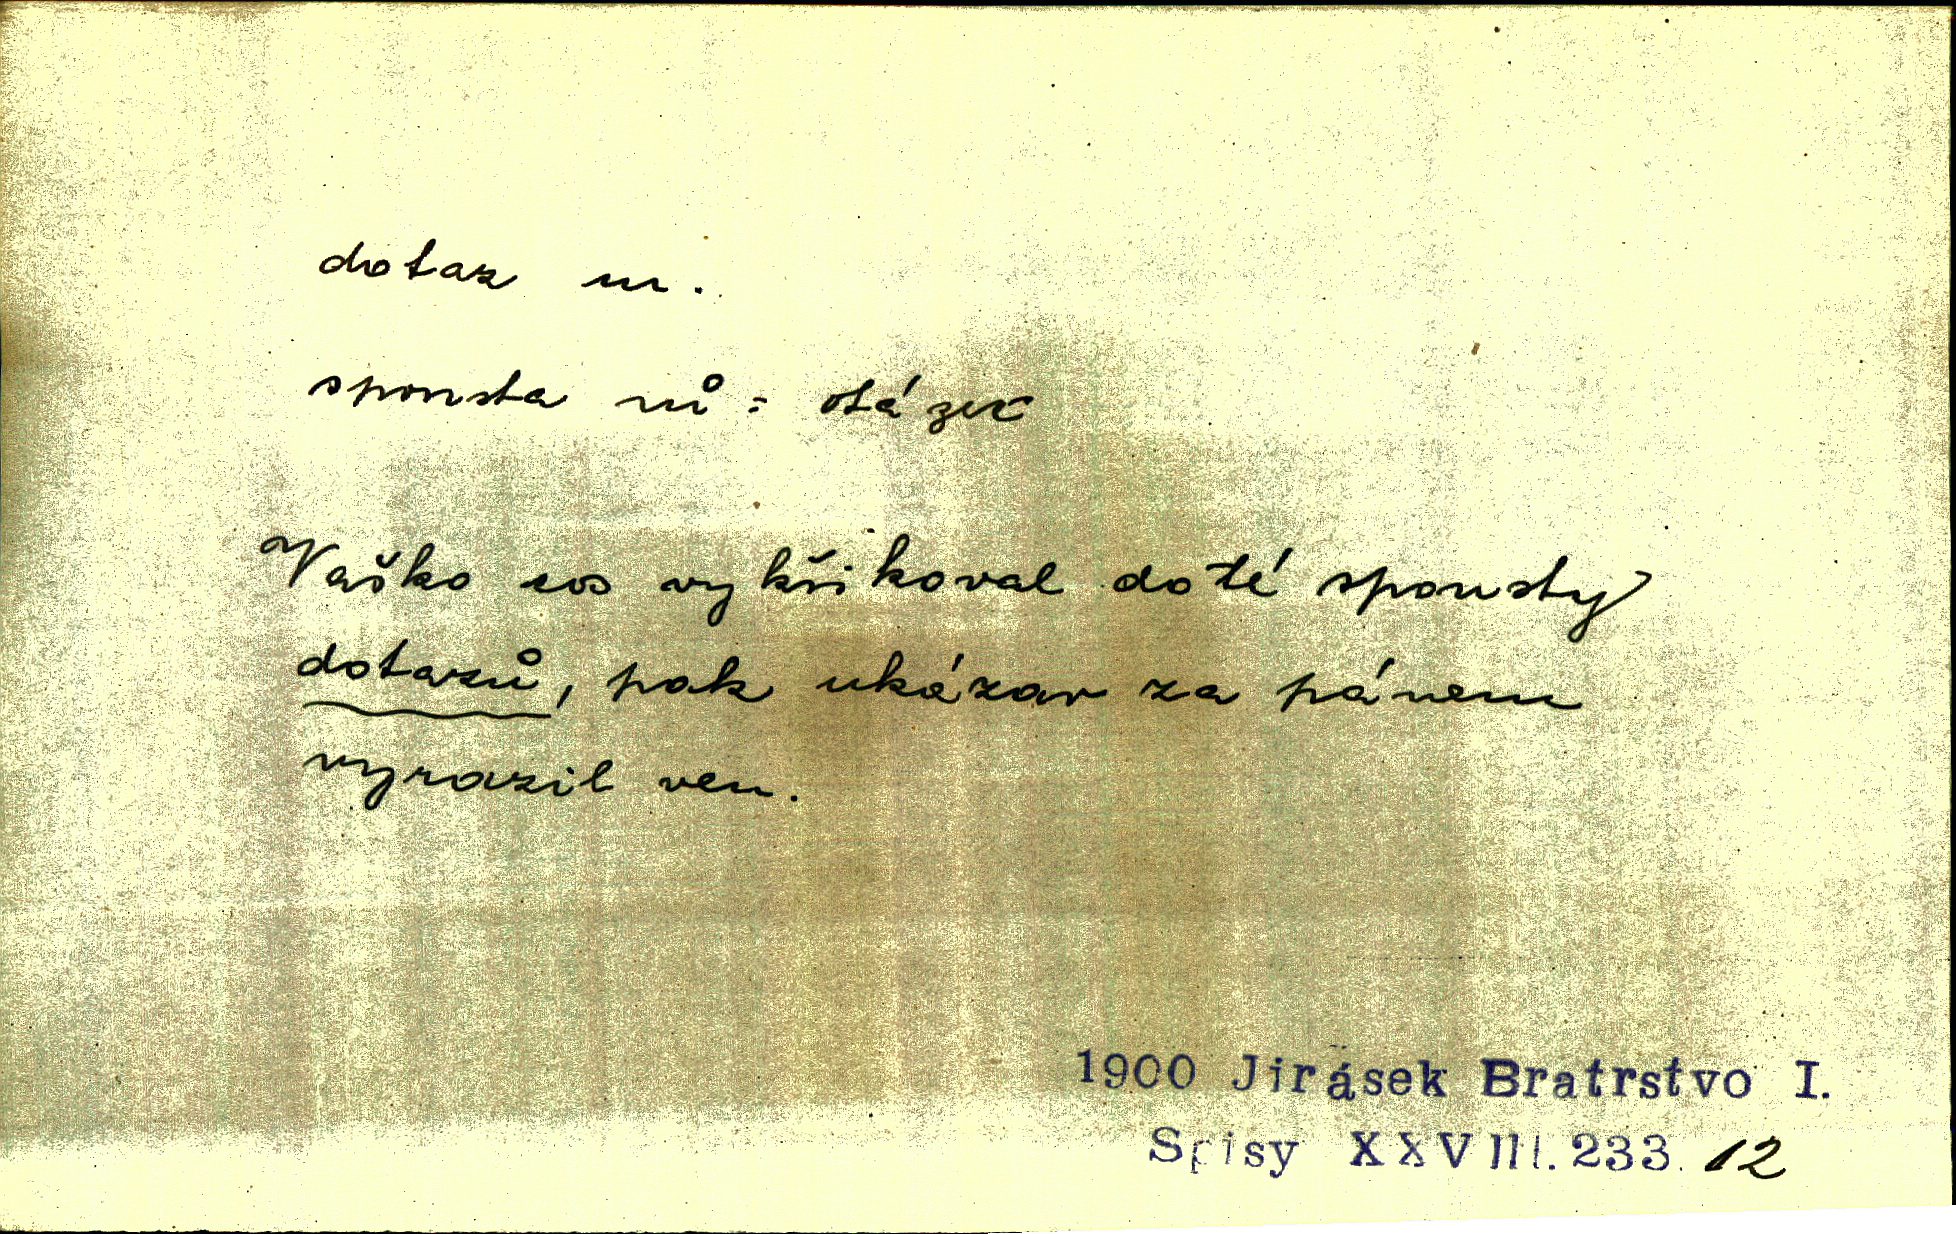 dotaz m.
spousta ~ů = otázek
Vaško cos vykřikoval do té spousty
dotazů, pak ukázav za pánem
vyrazil ven.
1900 Jirásek Bratrstvo I.
Spisy XXVIII. 233. 12